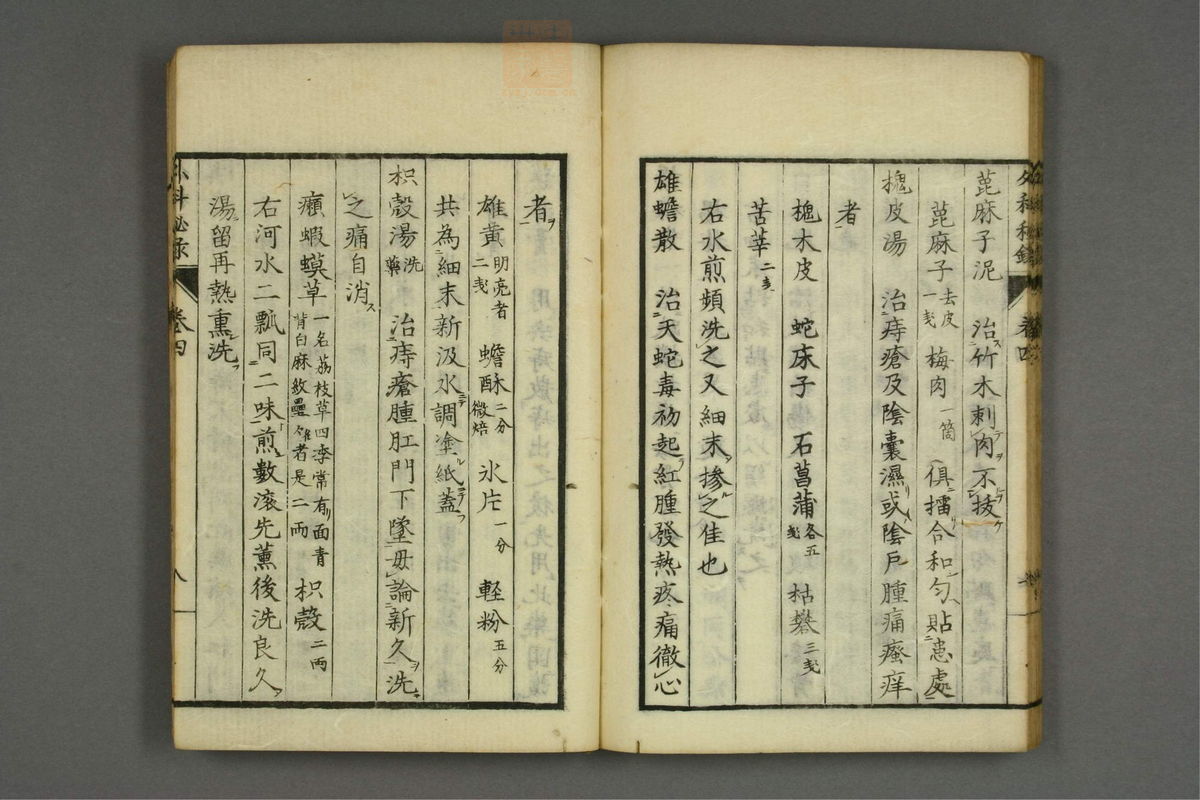 萞麻子泥　治竹木刺肉不抜
萞麻子去皮一戔　梅肉一箇　俱擂合和匀貼患處
槐皮湯　治痔瘡及陰囊濕或陰戸腫痛瘙痒
者
槐木皮　蛇床子　石菖蒲各五戔　枯礬三戔
苦茡二戔
右水煎頻洗之又細末摻之佳也
雄蟾散　治天蛇毒初起紅腫發熱疼痛徹心
者
雄黄明亮者二戔　蟾酥二分微焙　氷片一分　軽粉五分
共為細末新汲水調塗紙蓋
枳殼湯洗藥　治痔瘡腫肛門下墜毋論新久洗
之痛自消
癩蝦蟆草一名荔枝草四季常有面青背白麻紋壘々者是二両　枳殼二両
右河水二瓢同二味煎數滾先薰後洗良久
湯留再熱熏洗
外科秘录　卷四　八
卷四